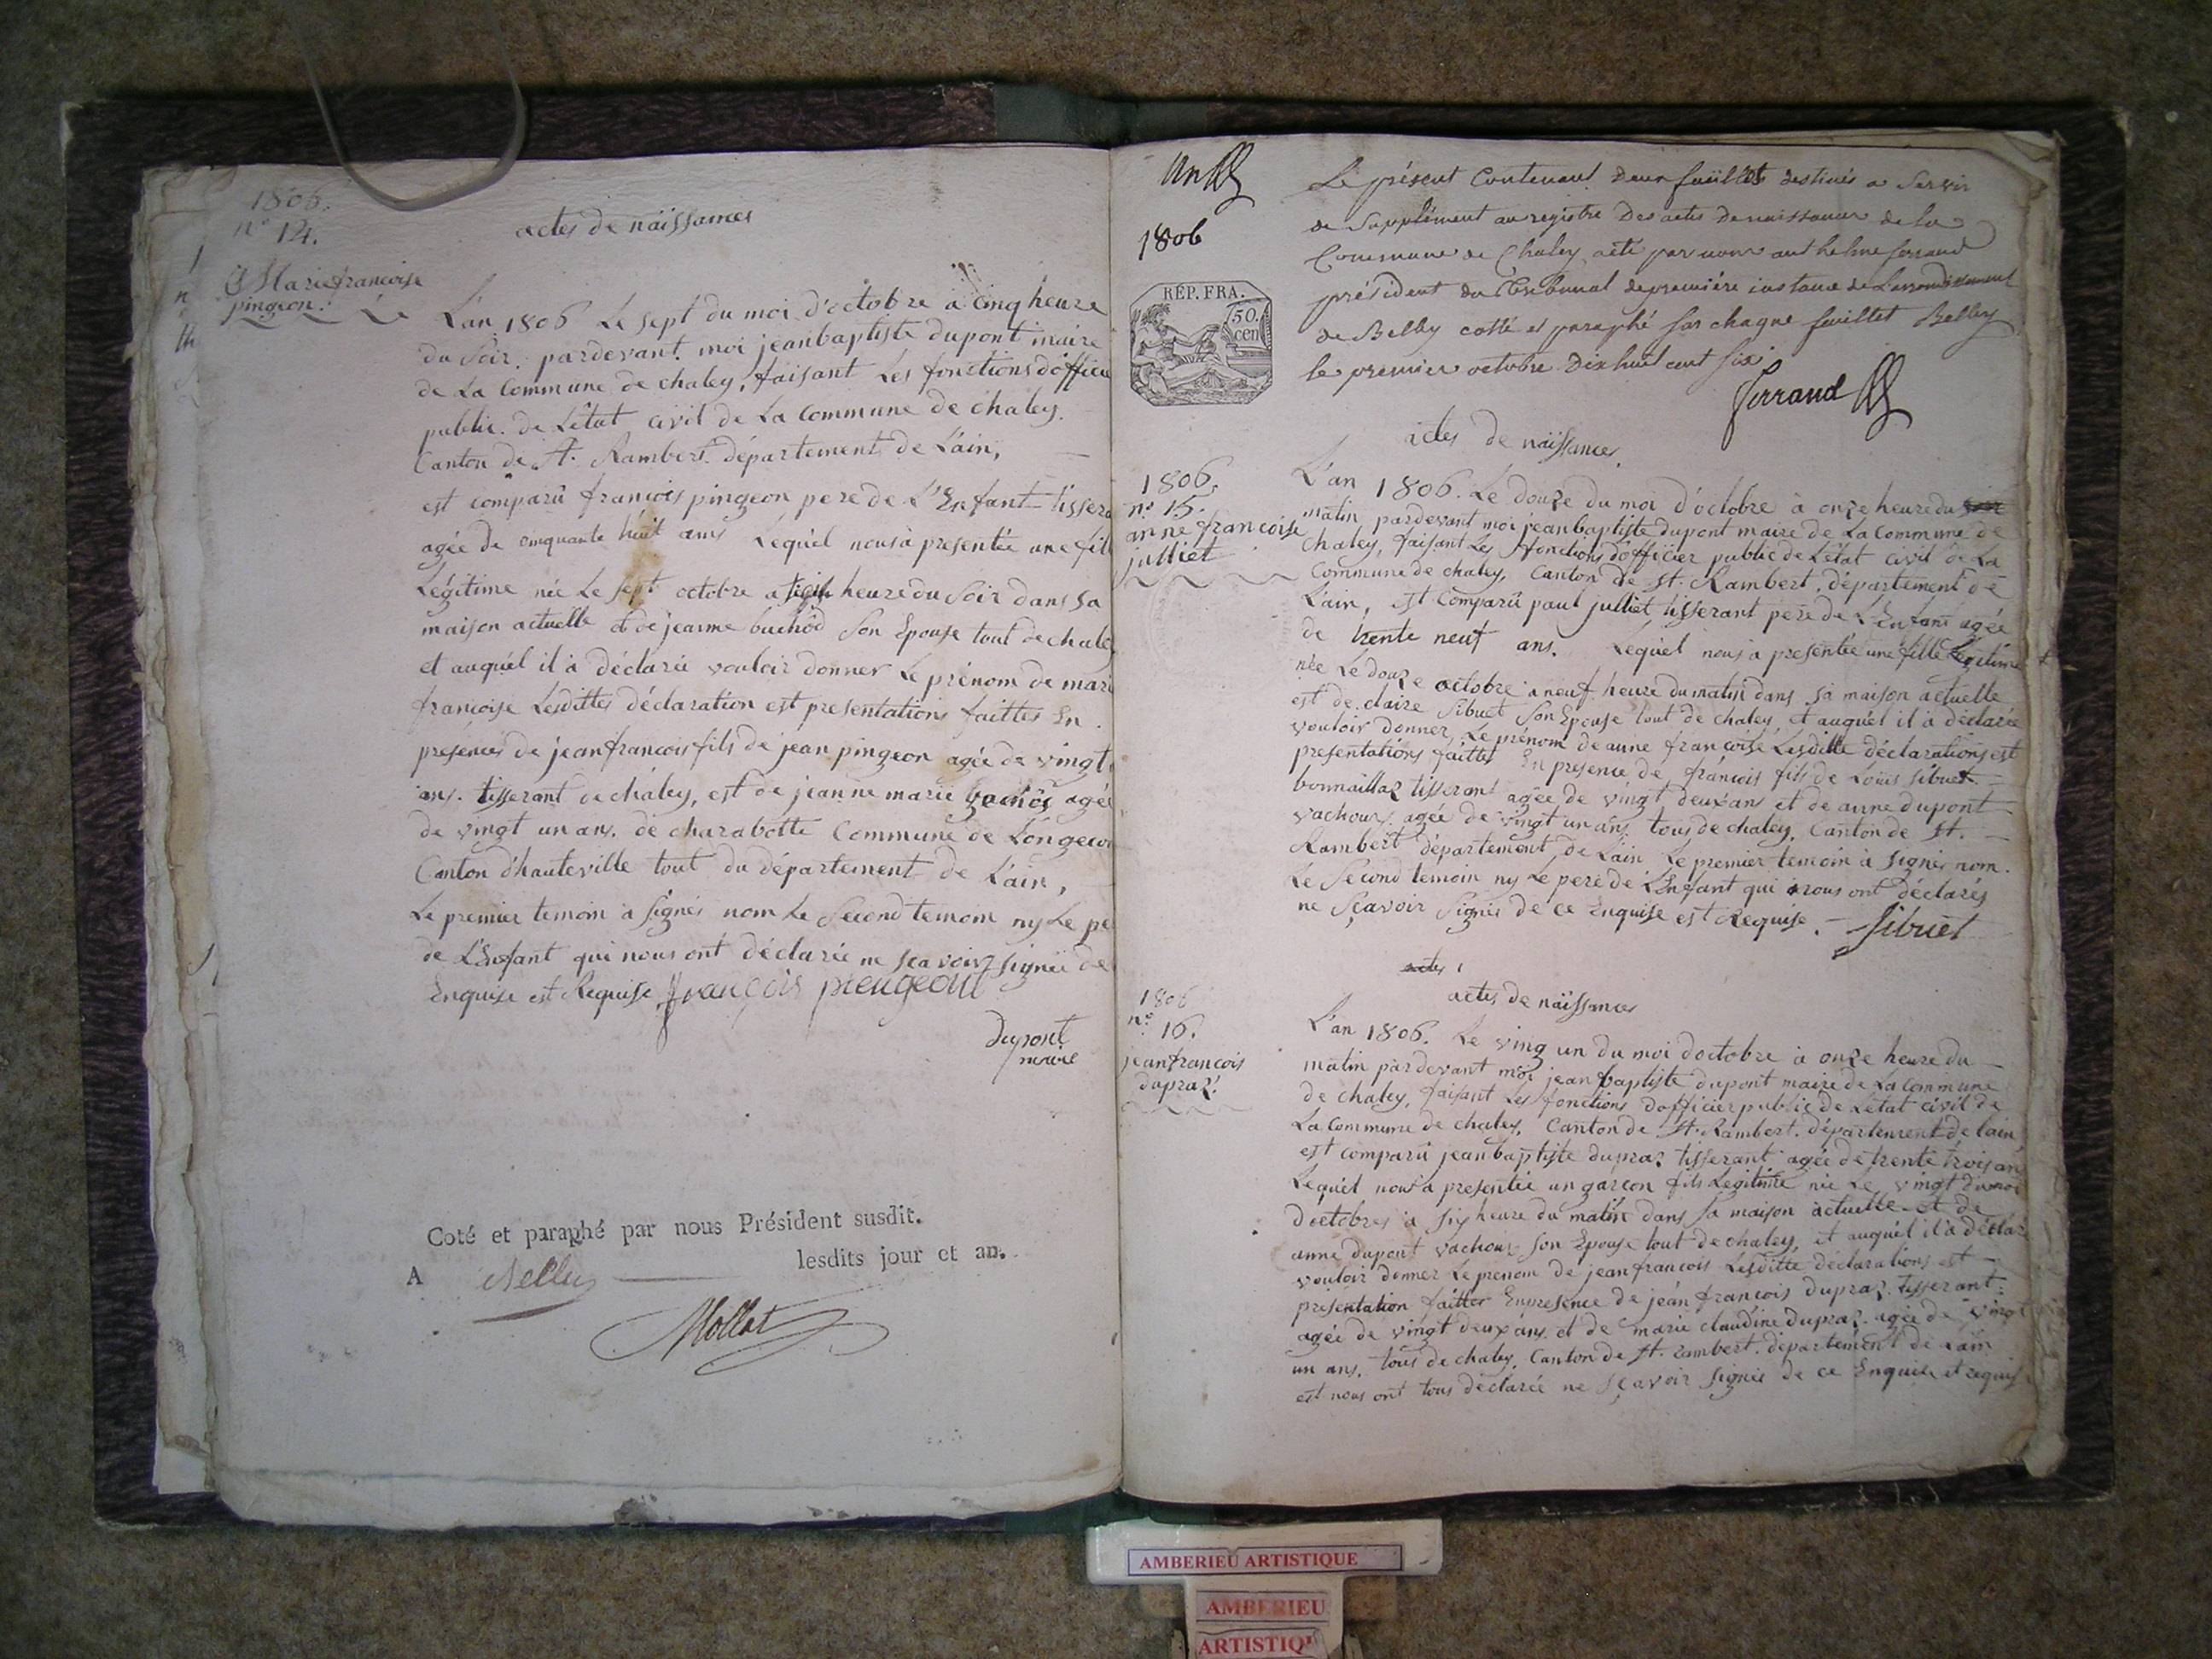 1806.
n° 14.
Marie francoise
pingeon.
actes de naissances
L'an 1806 Le sept du moi d'octobre a cinq heure
du soir. pardevant moi jeanbaptiste dupont maire
de La Commune de chaley, faisant Les fonctions d'officie
public. de L'état civil de La Commune de chaley.
Canton de St. Rambert. département de L'ain,
est comparû francois pingeon pere de L'Enfant tissera
agée de cinquante huit ans Lequel nous à presentée une fill
Légitime née Le sept octobre a heure du Soir dans sa
maison actuelle et de jeanne buchod Son Epouse tout de chaley
et auquel il à déclarée vouloir donner Le prénom de mari
francoise Lesdittes déclaration est presentations faittes En
presences de jean francois fils de jean pingeon agée de vingt
ans. tisserant de chaley, est de jeanne marie agée
de vingt un ans. de charabotte Commune de Longeco
Canton d'hauteville tout du département de L'ain,
Le premier temoin à signés nom Le Second temoin ny Le pe
de L'Enfant qui nous ont déclarée ne sçavoir signée de
Enquise est Requise françois piengeont
Dupont
maire
Coté et paraphé par nous Président susdit.
A lesdits jour et an.
Mollat
un
1806
RÉP. FRA.
50.
cen
Le présent Contenant Deux feuillets destinés a servir
de Supplément au registre Des actes de naissance de la
Commune de Chaley coté par nous anthelme ferrand
président du tribunal de première instance de L'arrondissement
de Belley cotté et paraphé sur chaque feuillet Belley
le premier octobre Dix huit cent six
ferrand
actes de naissances
1806.
n° 15.
anne francoise
julliet
L'an 1806. Le douze du moi d'octobre à onze heure du soir
matin pardevant moi jeanbaptiste dupont maire de La Commune de
chaley, faisant Les fonctions d'officier public de L'état civil de La
Commune de chaley, Canton de St. Rambert, département de
L'ain, est Comparû paul julliet tisserant pere de L'Enfant agée
de trente neuf ans. Lequel nous à presentée une fille Legitime
née Le douze octobre a neuf heure du matin dans sa maison actuelle
est de claire Sibuet Son Epouse tout de chaley, et auquel il à déclarée
vouloir donner Le prénom de anne francoise Lesditte déclarations est
presentations faittes En presence de francois fils de Louis sibuet
bonmaillaz tisserant agée de vingt deux ans et de anne dupont
vachoux agée de vingt un ans tous de chaley, Canton de St.
Rambert département de L'ain Le premier temoin à signés nom.
Le Second temoin ny Le pere de L'Enfant qui nous ont déclarés
ne sçavoir signés de ce Enquise est Requise. Sibuet
actes
actes de naissances
1806
n° 16.
jean francois
dupraz.
L'an 1806. Le ving un du moi d'octobre à onze heure du
matin pardevant moi jean baptiste dupont maire de La Commune
de chaley, faisant Les fonctions d'officier public de L'état civil de
La Commune de chaley, Canton de St. Rambert. département de L'ain
est comparû jean baptiste dupraz tisserant agée de trente trois an
Lequel nous à presentée un garçon fils Legitime née Le vingt du moi
d'octobres à six heure du matin dans sa maison actuelle et de
anne dupont vachoux son Epouse tout de chaley, et auquel il à déclar
vouloir donner Le prenom de jean francois Lesditte déclarations est
présentation faittes Enpresence de jean francois dupraz tisserant
agée de vingt deux ans et de marie claudine dupraz agée de vingt
un ans. tous de chaley, Canton de St. rambert. département de L'ain
est nous ont tous déclarée ne sçavoir signés de ce Enquise et requis
AMBERIEU ARTISTIQUE
AMBERIEU
ARTISTIQU